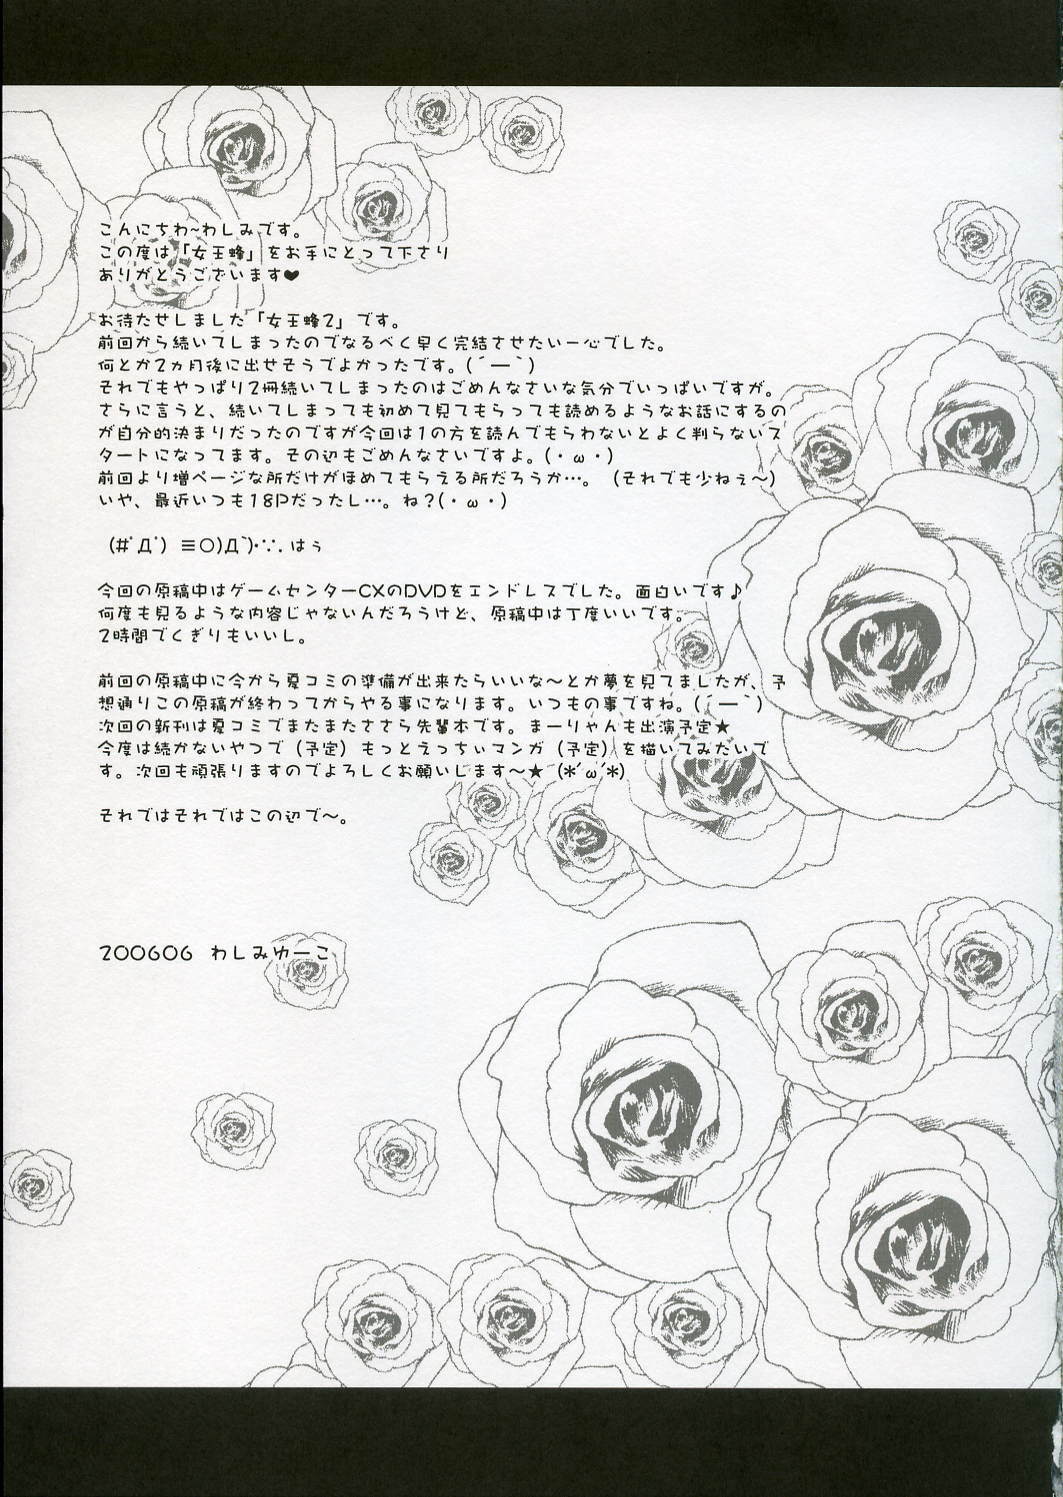 こんにちわ~わしみです。
この度は「女王蜂」をお手にとって下さり
ありがとうございます♥
お待たせしました「女王蜂2」です。
前回から続いてしまったのでなるべく早く完結させたい一心でした。
何とか2ヵ月後に出せそうでよかったです。(´ー｀)
それでもやっぱり2冊続いてしまったのはごめんなさいな気分でいっぱいですが。
さらに言うと、続いてしまっても初めて見てもらっても読めるようなお話にするの
が自分的決まりだったのですが今回は1の方を読んでもらわないとよく判らないス
タートになってます。その辺もごめんなさいですよ。(・ω・)
前回より増ページな所だけがほめてもらえる所だろうか…。（それでも少ねぇ〜）
いや、最近いつも18Pだったし…。ね?(・ω・)
(#ﾟДﾟ) ≡○)Д`)･∵. はぅ
今回の原稿中はゲームセンターCXのDVDをエンドレスでした。面白いです♪
何度も見るような内容じゃないんだろうけど、原稿中は丁度いいです。
2時間でくぎりもいいし。
前回の原稿中に今から夏コミの準備が出来たらいいな〜とか夢を見てましたが、予
想通りこの原稿が終わってからやる事になります。いつもの事ですね。(´ー｀)
次回の新刊は夏コミでまたまたささら先輩本です。まーりゃんも出演予定★
今度は続かないやつで（予定）もっとえっちぃマンガ（予定）を描いてみたいで
す。次回も頑張りますのでよろしくお願いします〜★ (*´ω`*)
それではそれではこの辺で〜。
200606 わしみゆーこ